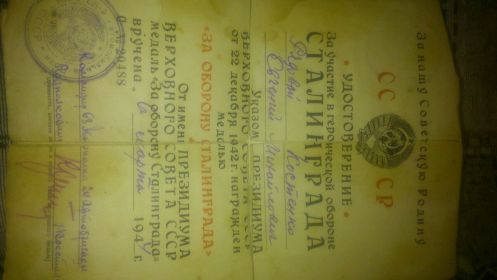 За нашу Советскую Родину
СС СР
УДОСТОВЕРЕНИЕ
За участие в героической обороне
СТАЛИНГРАДА
Костенко
Евгений Михайлович
Указом ПРЕЗИДИУМА
ВЕРХОВНОГО СОВЕТА СССР
от 22 декабря 1942 г. награжден
медалью
«ЗА ОБОРОНУ СТАЛИНГРАДА»
От имени ПРЕЗИДИУМА
ВЕРХОВНОГО СОВЕТА СССР
медаль «За оборону Сталинграда»
вручена 6 марта 194
№ 20488
Командир